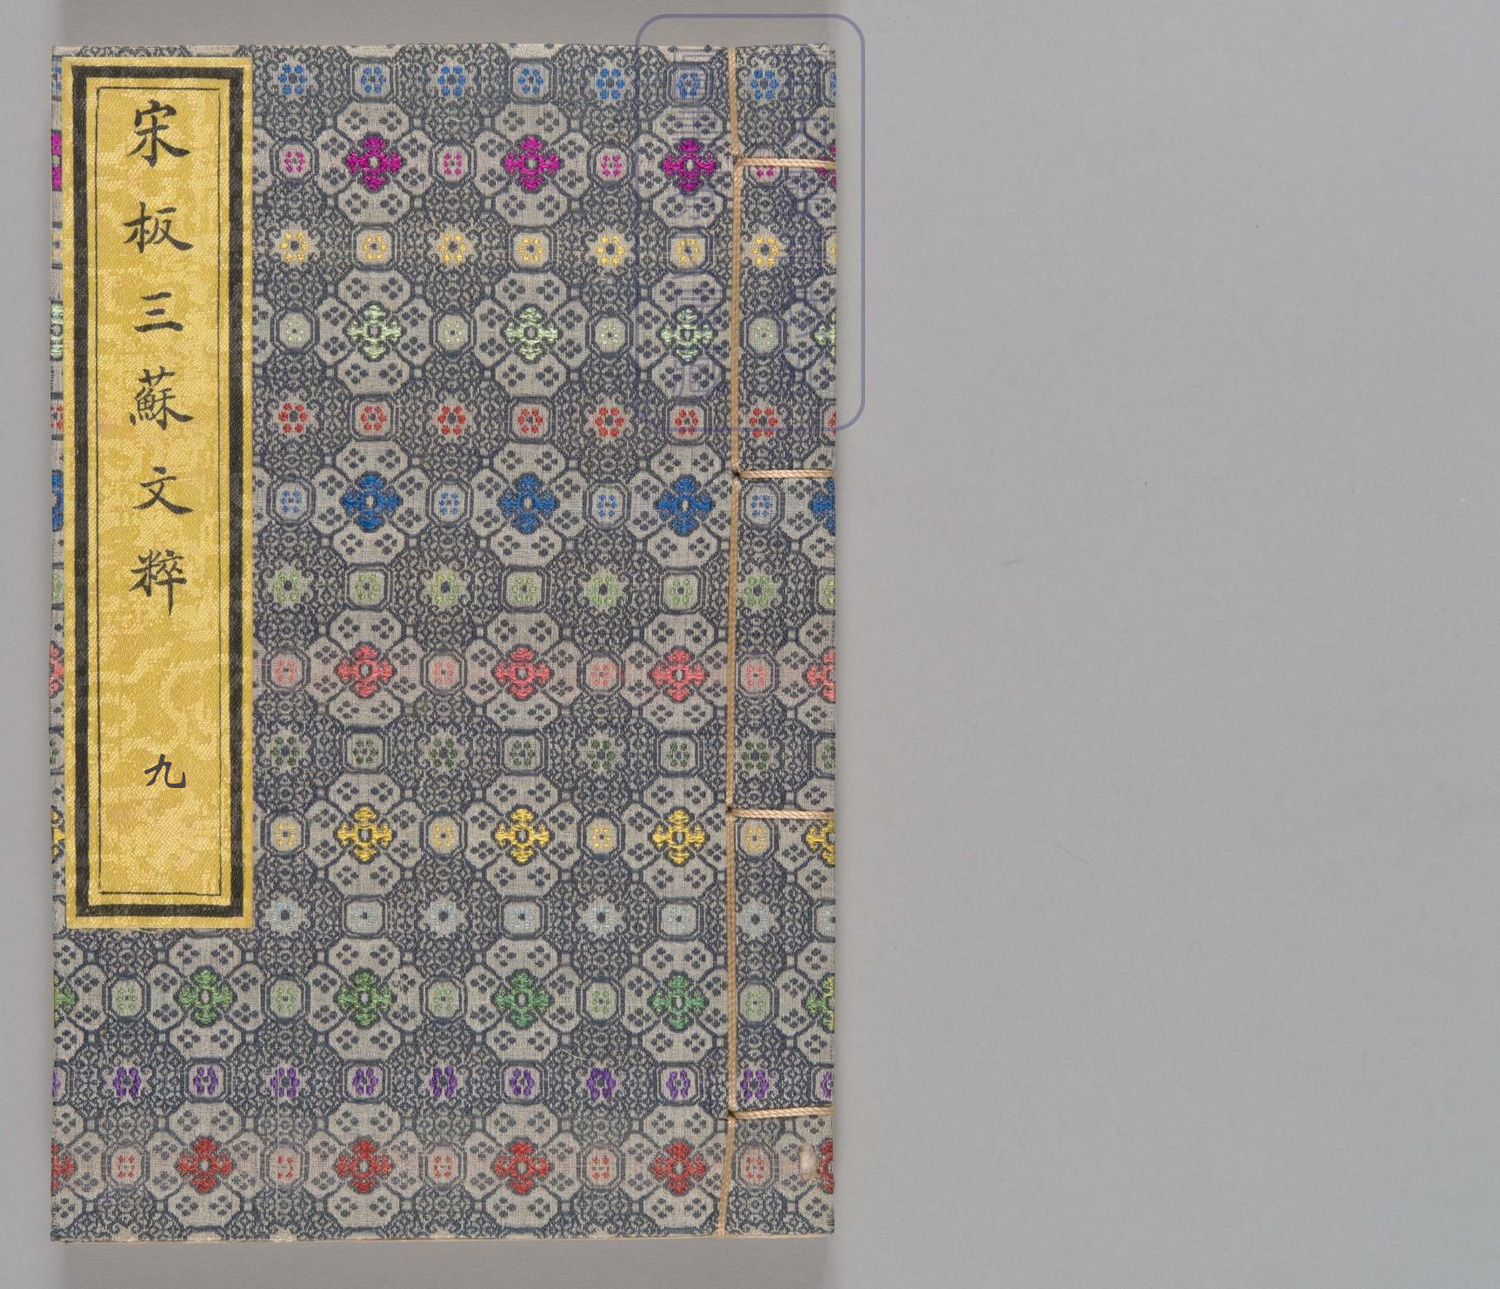 宋板三蘇文粹 九